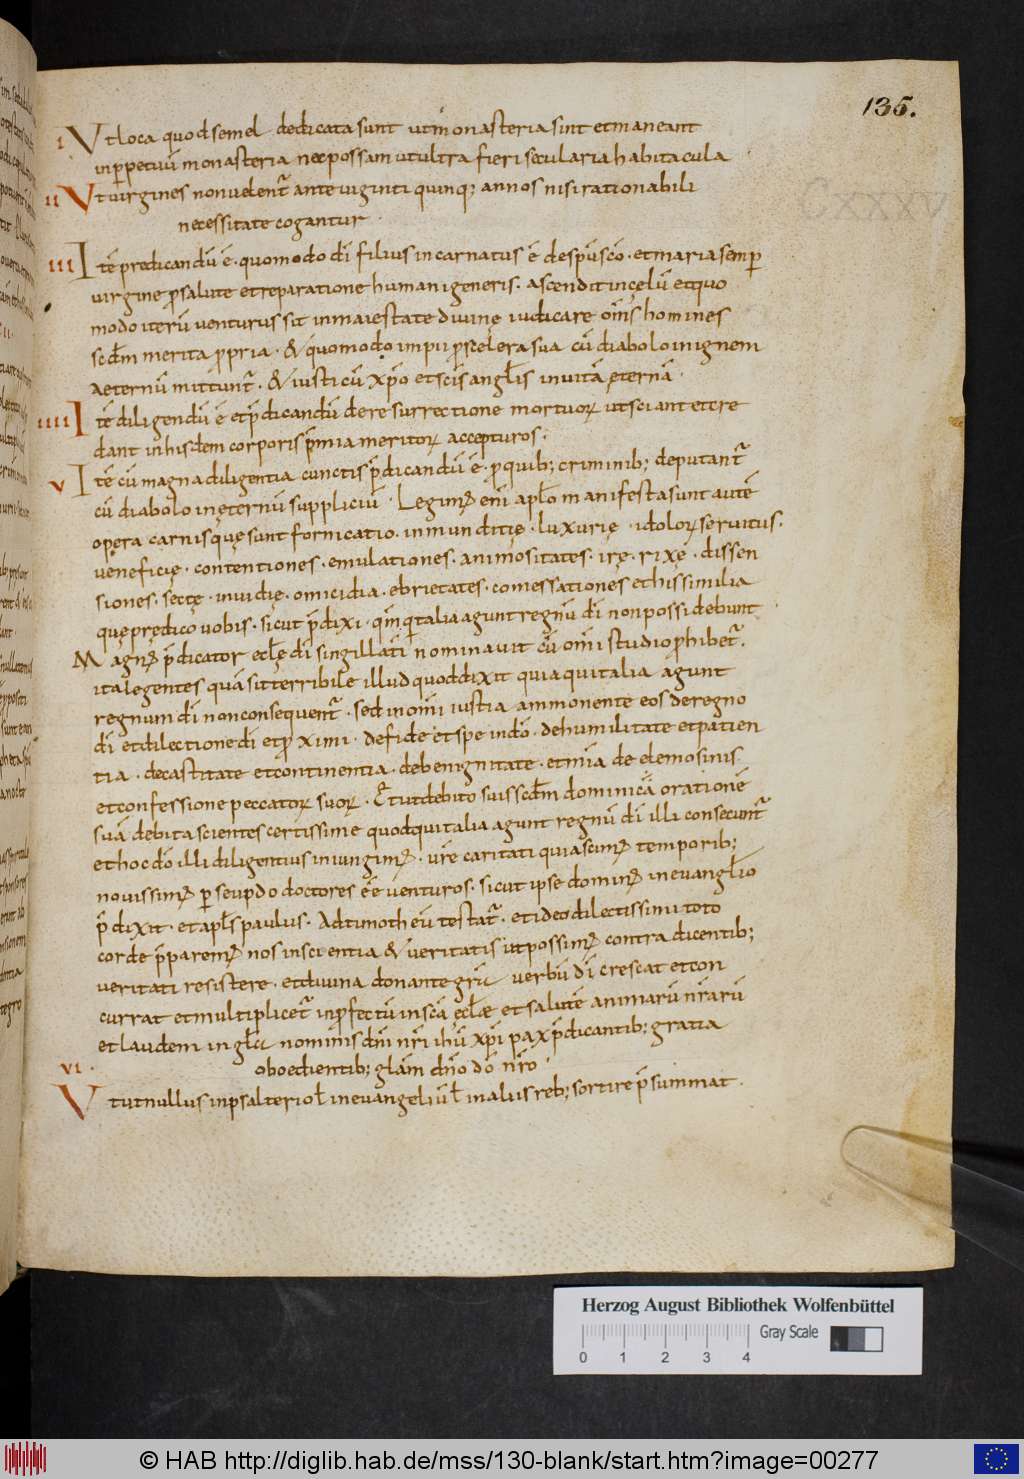 135.
I Vt loca quod semel dedicata sunt ut monasteria sint et maneant
inp̄petuū monasteria nec possam ut ultra fieri secularia habitacula
II Vt uirgines non uelent̄ ante uiginti quinq; annos nisi rationabili
necessitate cogantur
III Itē predicandū ē. quomodo dī filius incarnatus ē de spū scō. et maria semp̄
uirgine p salute et reparatione humani generis. ascendit in cęlū et quo
modo iterū venturus sit in maiestate diuinę iudicare om̄s homines
scdm merita propria. & quomodo impii p scelera sua cū diabolo in ignem
aeternū mittunt̄. & iusti cū xp̄o et scīs angl̄is in uitā ęternā
IIII Itē diligendū ē et p̄dicandū de resurrectione mortuoꝝ ut sciant et cre
dant in hisdem corporis p̄mia meritoꝝ accepturos.
V Itē cū magna diligentia cunctis p̄dicandū ē. p quib; criminib; deputant̄
cū diabolo in ęternū suppliciū. Legimꝰ enī apl̄o manifesta sunt autē
opera carnis quę sunt fornicatio. inmunditię. luxurię. idoloꝝ seruitus.
ueneficię. contentiones. emulationes. animositates. irę. rixę. dissen
siones. sectę. inuidię. omicidia. ebrietates. comessationes et his similia
quę prędico uobis. sicut p̄dixi. qm̄ qui talia agunt regnū dī non possidebunt
Magnꝰ p̄dicator ecl̄ę dī singillatī nominauit cū om̄i studio phibet̄.
ita legentes quā sit terribile illud quod dixit quia qui talia agunt
regnum dī non consequent̄. sed in om̄i iustia ammonente eos de regno
dī et dilectione dī et proximi. de fide et spe in dō. de humilitate et patien
tia. de castitate et continentia. de benignitate. et mīa de elemosinis
et confessione peccatoꝝ suoꝝ. & ut debito suis scdm dominicā orationē
suā debita scientes certissime quod qui talia agunt regnū dī illi consecunt̄
et hoc dō illi diligentius iniungimꝰ. ur̄e caritati quia scimꝰ temporib;
nouissimꝰ p seupdo doctores eē uenturos. sicut ipse dominꝰ in euanglīo
p̄dixit. et apl̄s paulus. Ad timotheū testat̄. et ideo dilectissimi toto
corde p̄paremꝰ nos in scientia & ueritatis ut possimꝰ contradicentib;
ueritati resistere. et diuina donante grā uerbū dī crescat et con
currat et multiplicet̄ in pfectū in scā ecl̄æ et salutē animarū nr̄arū
et laudem in gl̄a nominis dn̄i nr̄i ihū xp̄i pax p̄dicantib; gratia
oboedientib; glām dn̄o dō nr̄o.
VI Vt ut nullus in psalterio l̄ in euangeliū l̄ in aliis reb; sortire p̄summat.
Herzog August Bibliothek Wolfenbüttel
Gray Scale
0 1 2 3 4
© HAB http://diglib.hab.de/mss/130-blank/start.htm?image=00277